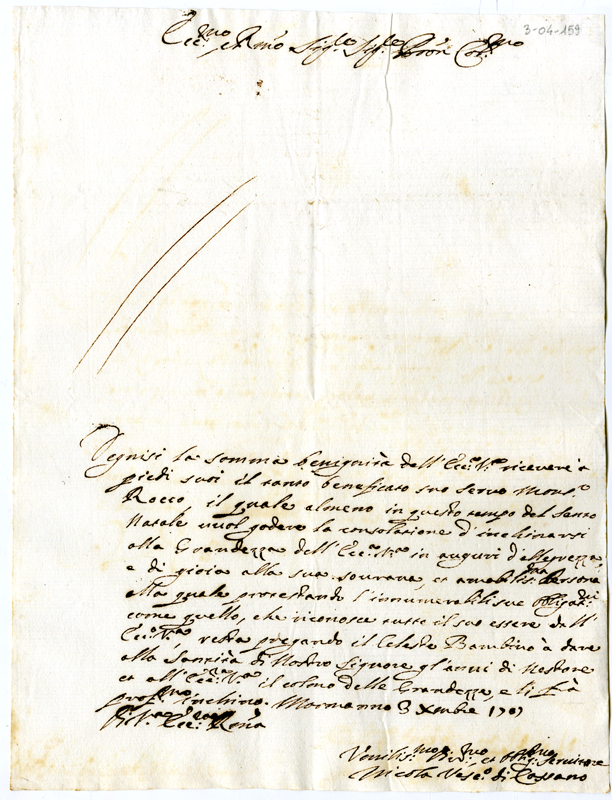 3-04-159
Ecc.mo, e Rmo Sig.re Sig.re Pron Col.mo
Degnisi la somma benignità dell'Ecc.a V.a ricevere à
piedi suoi il tanto beneficato suo servo Mons.r
Rocco il quale almeno in questo tempo del Santo
Natale vuol godere la consolatione d'inchinarsi
alla Grandezza dell'Ecc.a V.a in auguri d'allegrezza,
e di gioia alla sua sourana, et amabilis.ma Persona
alla quale protestando l'innumerabili sue obligat.ni
come quello, che riconosce tutto il suo essere dall'
Ecc.a V.a, resta pregando il Celeste Bambino à dare
alla Santità di Nostro Signore gl'anni di Nestore
et all'Ecc.a V.a il colmo delle Grandezze, e li fà
prof.mo inchino. Mormanno 3 Xembre 1707
Di V.a Ecc.a Rev.ma
Vmilis.mo Div.mo et obblig.mo Servitore
Nicola Vesc.o di Cassano